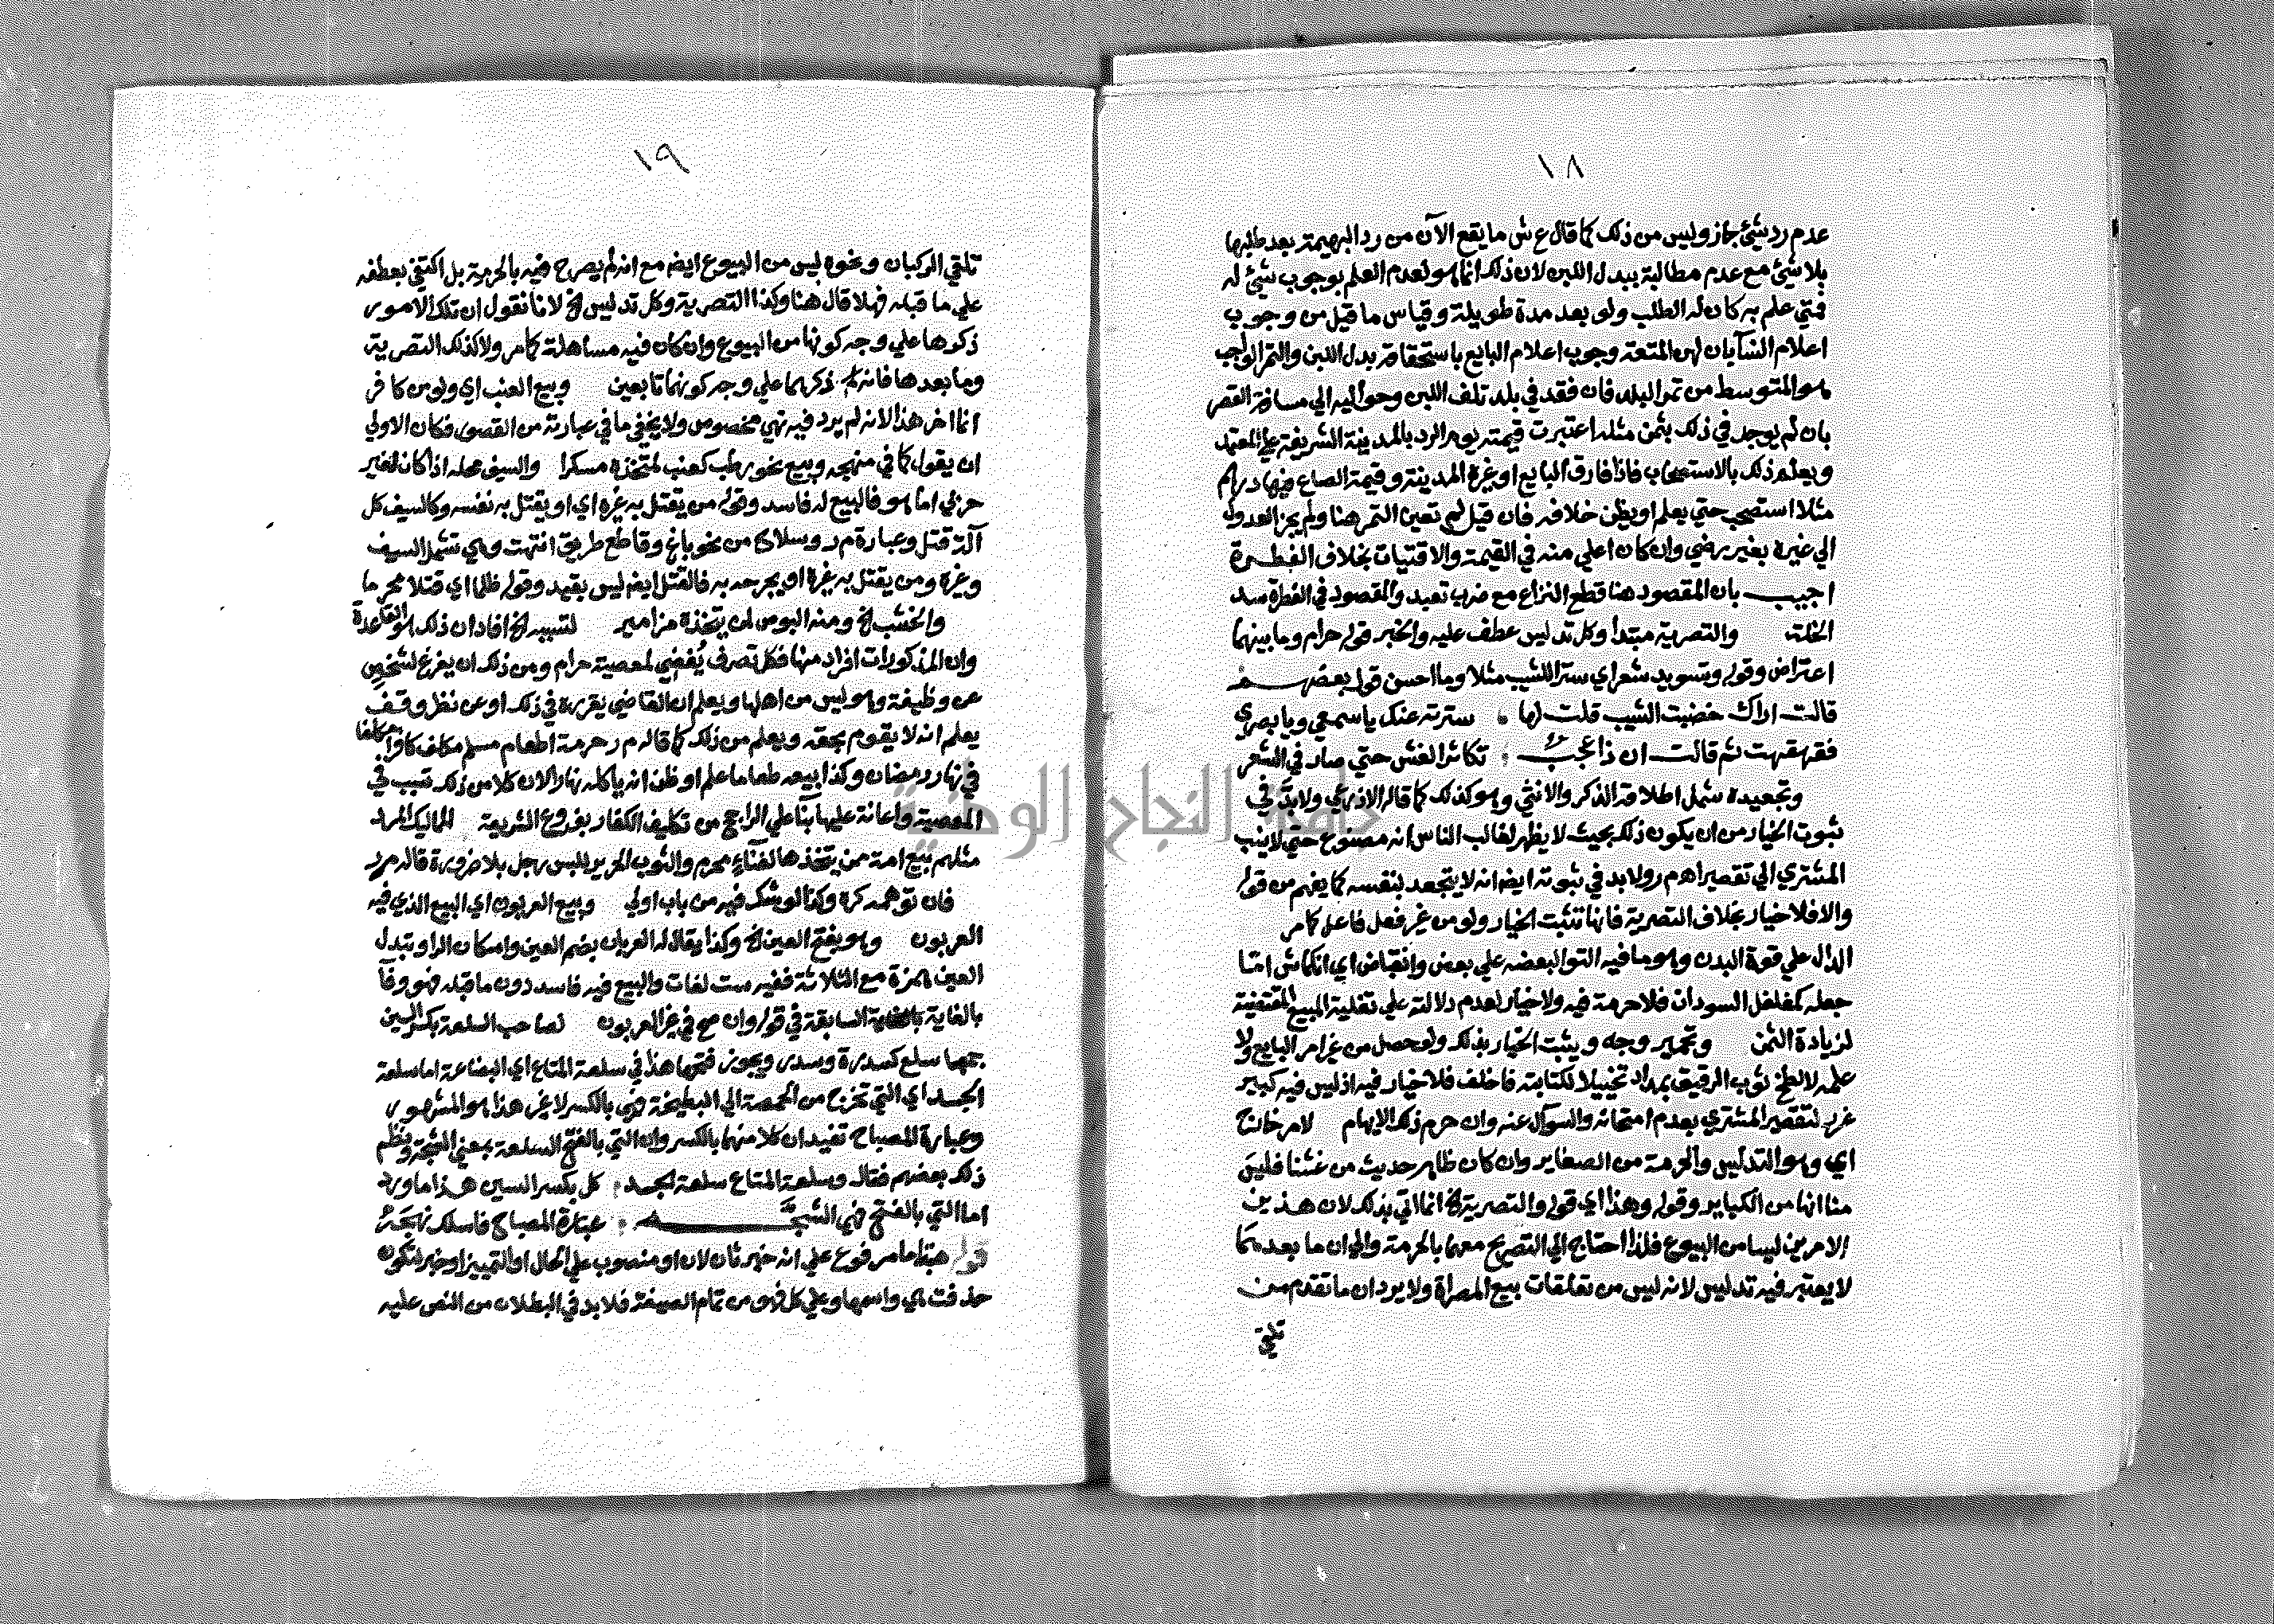 ١٨
عدم رد شيئ جاز وليس من ذلك كما قال ع ش ما يقع الآن من رد البهيمة بعد طلبها
بلا شيئ مع عدم مطالبة ببدل اللبن لان ذلك انما هو لعدم العلم بوجوب شيئ له
فمتي علم به كان له الطلب ولو بعد مدة طويلة وقياس ما قيل من وجوب
اعلام النسآ بان لهن المتعة وجوب اعلام البايع باستحقاقه بدل اللبن والتمر الواجب
هو المتوسط من تمر البلد فان فقد في بلد تلف اللبن وحواليه الي مسافة القصر
بان لم يوجد في ذلك بثمن مثله اعتبرت قيمته يوم الرد بالمدينة الشريفة علي المعتمد
ويعلم ذلك بالاستصحاب فاذا فارق البايع او غيره المدينة وقيمة الصاع فيها دراهم
مثلا استصحب حتي يعلم او يظن خلافه فان قيل لم تعين التمر هنا ولم يجز العدول
الي غيره بغير رضي وان كان اعلي منه في القيمة والاقتيات بخلاف الفطرة
اجيب بان المقصود هنا قطع النزاع مع ضرب تعبد والمقصود في الفطرة سد
الخلة والتصرية مبتدأ وكل تدليس عطف عليه والخبر قوله حرام وما بينهما
اعتراض وقوله وتسويد شعر اي ستر الشيب مثلا وما احسن قول بعضهم
قالت اراك خضبت الشيب قلت لها ۰ سترته عنك ياسمعي ويابصري
فقهقهت ثم قالت ان ذا عجب ؛ تكاثر الغش حتي صار في الشعر
وتجعيده شمل اطلاقه الذكر والانثي وهو كذلك كما قاله الاذرعي ولا بد في
ثبوت الخيار من ان يكون ذلك بحيث لا يظهر لغالب الناس انه مصنوع حتي لا ينسب
المشتري الي تقصير اهم ر ولا بد في ثبوته ايضا انه لا يتجعد لنفسه كما يفهم من قوله
والا فلا خيار بخلاف التصرية فانها تثبت الخيار ولو من غير فعل فاعل كما مر
الدال علي قوة البدن وهو ما فيه التوا لبعضه علي بعض وانقباض اي انكماش اما
جعله كمفلفل السودان فلا حرمة فيه ولا خيار لعدم دلالته علي نقلية المبيع المقتضية
لزيادة الثمن وتحمير وجه ويثبت الخيار بذلك ولو حصل من غير امر البايع ولا
علمه لا لطخ ثوب الرقيق بمداد تخييلا لكتابته فاخلف فلا خيار فيه اذ ليس فيه كبير
غرر لتقصير المشتري بعدم امتحانه والسوآل عنه وان حرم ذلك الايهام لامر خالتج
اي وهو التدليس والحرمة من الصغاير وان كان ظاهر حديث من غشنا فليس
منا انها من الكباير وقوله وهذا اي قوله والتصرية الخ انما اتي بذلك لان هذين
الامرين ليسا من البيوع فلذا احتاج الي التصريح معهما بالحرمة والي ان ما بعدهما
لا يعتبر فيه تدليس لانه ليس من تعلقات بيع المصراة ولا يرد ان ما تقدم من
تلقي
١٩
تلقي الركبان ونحوه ليس من البيوع ايضا مع انه لم يصرح فيه بالحرمة بل اكتفي بعطفه
علي ما قبله فهلا قال هنا وكذا التصرية وكل تدليس الخ لانا نقول ان تلك الامور
ذكرها علي وجه كونها من البيوع وان كان فيه مساهلة كما مر ولا كذلك التصرية
وما بعدها فانه ذكرهما علي وجه كونهما تابعين وبيع العنب اي ولو من كافر
انما اخر هذا لانه لم يرد فيه نهي مخصوص ولا يخفي ما في عبارته من القصور فكان الاولي
ان يقول كما في منهجه وبيع نحو رطب كعنب لمتخذه مسكرا والسيف محله اذا كان لغير
حربي اما هو فالبيع له فاسد وقوله من يقتل به غيره اي او يقتل به نفسه وكالسيف كل
آلة قتل وعبارة م ر وسلاح من نحو باغ وقاطع طريق انتهت وهي تشمل السيف
وغيره ومن يقتل به غيره او يجرحه به فالقتل ايضا ليس بقيد وقوله ظلما اي قتلا محرما
والخشب الخ ومنه البوص لمن يتخذه مزامير لتسببه الخ افاد ان ذلك هو القاعدة
وان المذكورات افراد منها فكل تصرف يُفضي لمعصية حرام ومن ذلك ان يفرغ لشخص
عن وظيفة وهو ليس من اهلها ويعلم ان القاضي يقرره في ذلك او عن نظر وقف
يعلم انه لا يقوم بحقه ويعلم من ذلك كما قاله م ر حرمة اطعام مسلم مكلف كافرا مكلفا
في نهار رمضان وكذا بيعه طعاما علم او ظن انه ياكله نهارا لان كلا من ذلك تسبب في
المعصية واعانة عليها بنآ علي الراجح من تكليف الكفار بفروع الشريعة المماليك المرد
مثلهم بيع امة ممن يتخذها لغنآء محرم والثوب الحرير للبس رجل بلا ضرورة قاله م ر
فان توهمه كره وكذا لو شك فيه من باب اولي وبيع العربون اي البيع الذي فيه
العربون وهو بفتح العين الخ وكذا يقال له العربان بضم العين واسكان الرا وتبدل
العين همزة مع الثلاثة ففيه ست لغات والبيع فيه فاسد دون ما قبله فهو وفآ
بالغاية السابقة في قوله وان صح في غير العربون لصاحب السلعة بكسر السين
جمعها سلع كسدرة وسدر ويجوز فتحها هذا في سلعة المتاع اي البضاعة اما سلعة
الجسد اي التي تخرج من الحمصة الي البطيخة فهي بالكسر لا غير هذا هو المشهور
وعبارة المصباح تفيد ان كلا منهما بالكسر وان التي بالفتح السلعة بمعني الشجة ونظم
ذلك بعضهم فقال وسلعة المتاع سلعة الجسد ؛ كل بكسر السين هذا ما ورد
اما التي بالفتح فهي الشجه ؛ عبارة المصباح فاسلك نهجه
قوله هبة اما مرفوع علي انه خبر ثان لان او منصوب علي الحال او التمييز او خبر لتكون
حذفت هي واسمها وعلي كل فهو من تمام الصيغة فلا بد في البطلان من النص عليه
جامعة النجاح الوطنية